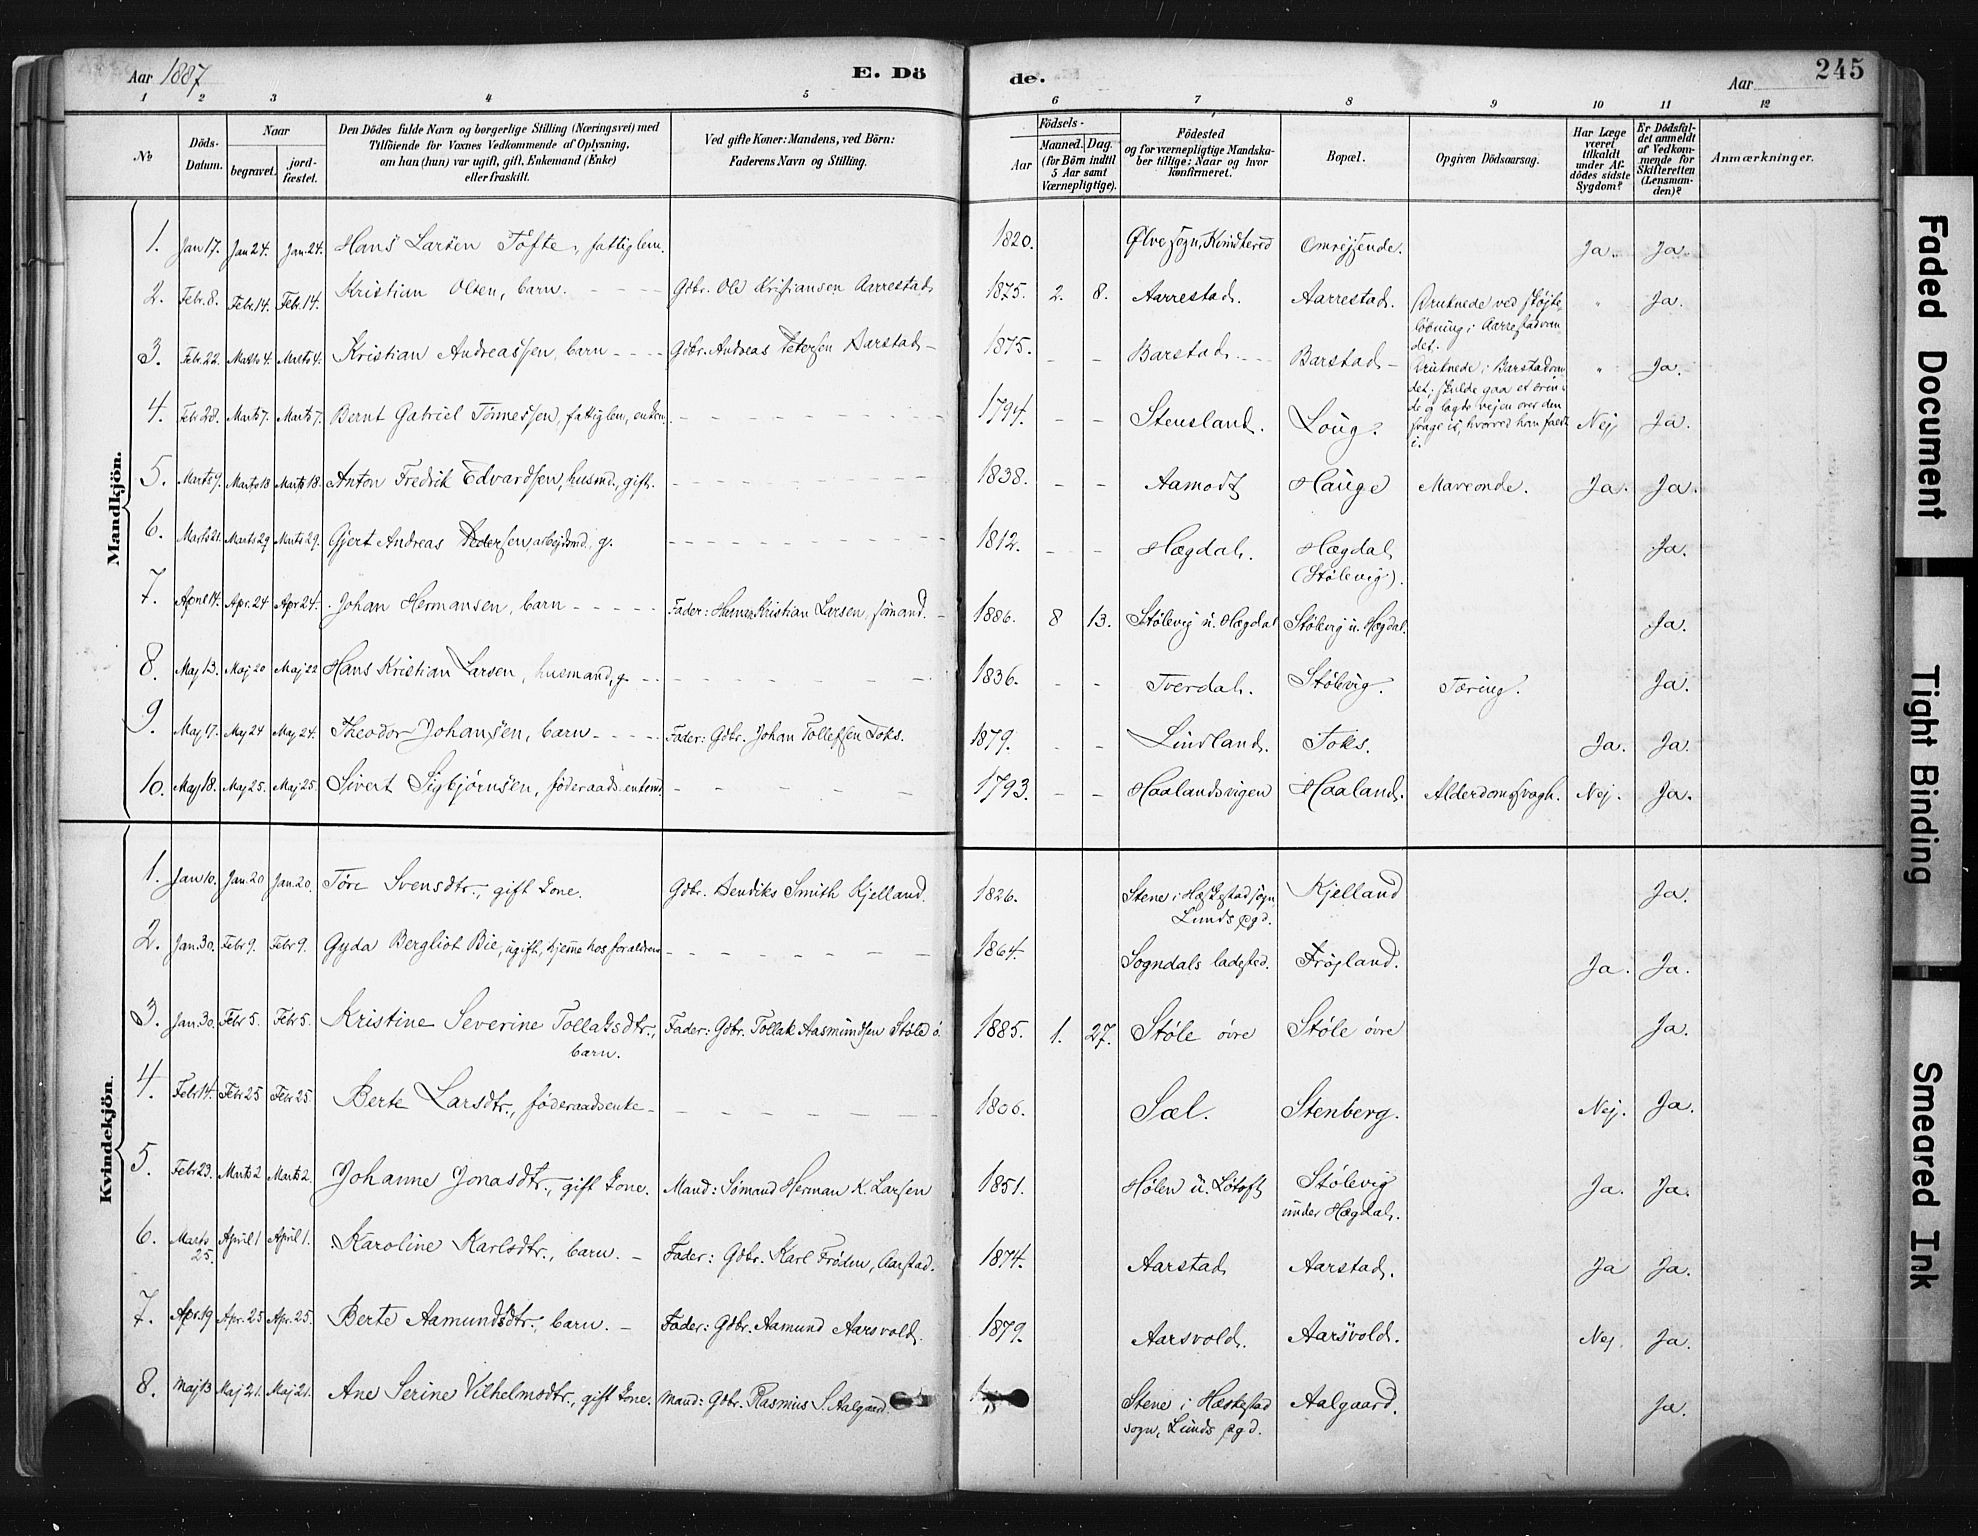 Aar 1887
E. Dö
de.
Aar
245
1 2 3 4 5 6 7 8 9 10 11 12
№
Döds-
Datum.
Naar
begravet.
jord-
fæstet.
Den Dödes fulde Navn og borgerlige Stilling (Næringsvei) med
Tilföiende for Voxnes Vedkommende af Oplysning,
om han (hun) var ugift, gift, Enkemand (Enke)
eller fraskilt.
Ved gifte Koner: Mandens, ved Börn:
Faderens Navn og Stilling.
Födsels-
Aar
Maaned. Dag.
(for Börn indtil
5 Aar samt
Værnepligtige).
Födested
og for værnepligtige Mandska-
ber tillige: Naar og hvor
konfirmeret.
Bopæl.
Opgiven Dödsaarsag.
Har Læge
været
tilkaldt
under Af-
dödes sidste
Sygdom?
Er Dödsfal-
det anmeldt
af Vedkom-
mende for
Skifteretten
(Lensman-
den)?
Anmærkninger.
Mandkjön.
1. Jan 17. Jan 24. Jan. 24. Hans Larsen Tofte, fattiglem. 1820. Ølve sogn, Kvindherred Omrejsende. Ja. Ja.
2. Febr. 8. Febr. 14. Febr. 14. Kristian Olsen, barn. Gdbr. Ole Kristiansen Aarrestad 1875. 2. 8. Aarrestad. Aarrestad. Druknede ved skøjte-
løbning i Aarrestadvan-
det. " Ja.
3. Febr. 22. Marts 4. Marts 4. Kristian Andreassen, barn Gdbr. Andreas Petersen Barstad 1875. Barstad Barstad Druknede i Barstadvan-
det; skulde gaa et ærin-
de og lagde vejen over den
svage is, hvorved han faldt
i. " Ja.
4. Febr 28. Marts 7. Marts 7. Bernt Gabriel Tønnessen, fattiglem, enkem. 1794. Stensland. Loug. Nej Ja.
5. Marts 9. Marts 18 Marts 18. Anton Fredrik Edvardsen, husmd, gift. 1838. Aamodt Hauge Maveonde. Ja. Ja.
6. Marts 21. Marts 29 Marts 29. Gjert Andreas Pedersen, arbejdsmd, g. 1812. Hægdal. Hægdal
(Stølevig). Ja.
7. April 14. Apr. 24 Apr 24. Johan Hermansen, barn Fader: Herman Kristian Larsen, sømand. 1886. 8 13. Stølevig u. Hægdal Stølevig u. Hægdal. Ja.
8. Maj 13. Maj 20 Maj 22 Hans Kristian Larsen, husmand, g. 1836. Tverdal. Stølevig. Tæring. Ja.
9. Maj 17. Maj 24 Maj 24. Theodor Johansen, barn Fader: Gdbr. Johan Tollefsen Foks. 1879. Lindland. Foks. Ja. Ja.
10. Maj 18. Maj 25. Maj 25. Sivert Sigbjørnsen, føderaads-enkemd. 1793. Haalandsvigen Haaland. Alderdomssvagh. Nej. Ja.
Kvindekjön.
1. Jan 10. Jan. 20 Jan. 20. Tore Svensdtr., gift kone. Gdbr. Bendiks Smith Kjelland. 1826. Stene i Hæskestad sogn
Lunds pgd. Kjelland Ja.
2. Jan. 30. Febr 9. Febr 9. Gyda Bergliot Bie, ugift, hjemme hos forældrene 1864. Sogndals ladested. Frøjland. Ja. Ja.
3. Jan. 30. Febr 5. Febr 5. Kristine Severine Tollaksdtr.,
barn. Fader: Gdbr. Tollak Aasmundsen Støle ø. 1885. 1. 27. Støle øvre Støle øvre Ja.
4. Febr 14. Febr 25 Febr 25. Berte Larsdtr., føderaadsenke 1806. Sæl. Stenberg. Nej. Ja.
5. Febr 23. Marts 2 Marts 2. Johanne Jonasdtr., gift kone. Mand: Sømand Herman K. Larsen 1851. Hølen u. Løtoft Stølevig
under Hægdal. Ja. Ja.
6. Marts
25. April 1 April 1. Karoline Karlsdtr., barn. Fader: Gdbr. Karl Frøden, Aarstad. 1874. Aarstad Aarstad. Ja Ja.
7. Apr. 19 Apr. 25 Apr. 25. Berte Aamundsdtr., barn. Fader: Gdbr. Aamund Aarsvold. 1879. Aarsvold. Aarsvold. Nej. Ja.
8. Maj 13 Maj 21. Maj 21. Ane Serine Vilhelmsdtr., gift kone. Mand: Gdbr. Rasmus S. Aalgaard. Stene i Hæskestad
sogn, Lunds pgd. Aalgaard. Ja.
Faded Document
Tight Binding
Smeared Ink